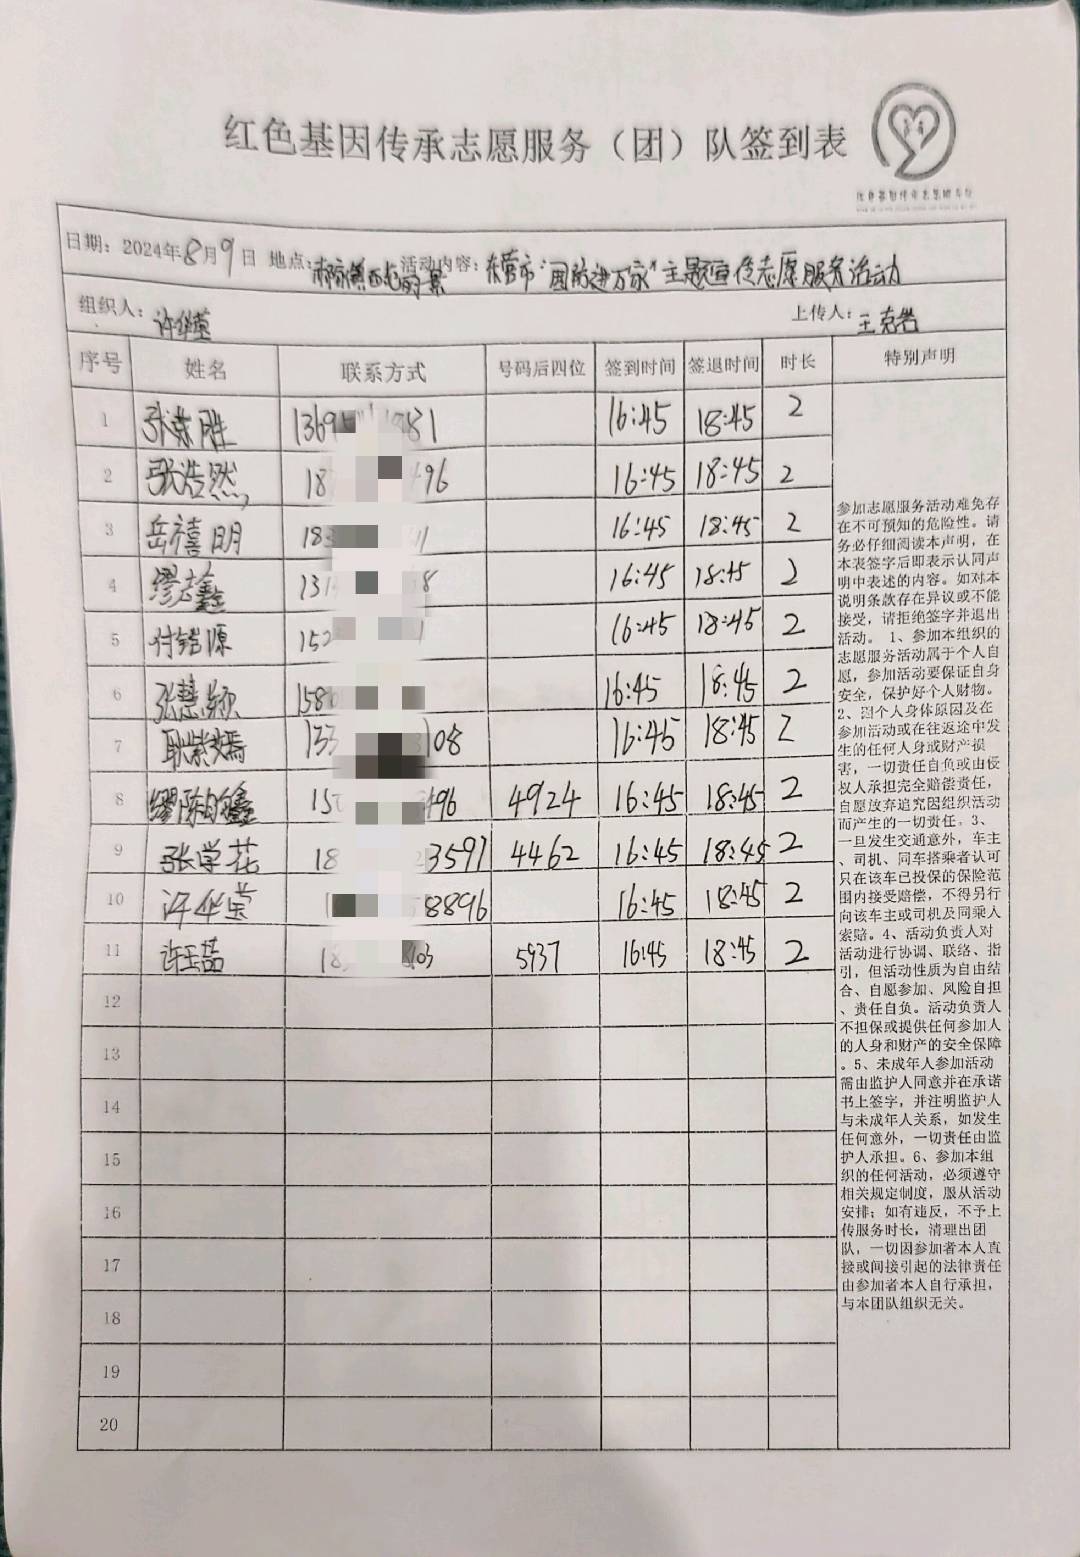 红色基因传承志愿服务（团）队签到表
日期：2024年8月9日 地点： 活动内容：东营市"国防进万家"主题宣传志愿服务活动
组织人：许华莹 上传人：王克浩
序号 姓名 联系方式 号码后四位 签到时间 签退时间 时长 特别声明
1 张荣胜 1369 16:45 18:45 2
2 张浩然 18 496 16:45 18:45 2
3 岳禧明 18 16:45 18:45 2
4 缪志鑫 131 8 16:45 18:45 2
5 付铠源 152 16:45 18:45 2
6 张慧颖 158 16:45 18:45 2
7 耿紫嫣 133 108 16:45 18:45 2
8 15 496 4924 16:45 18:45 2
9 张学花 18 3591 4462 16:45 18:45 2
10 许华莹 1 8896 16:45 18:45 2
11 许玉喆 18 03 5937 16:45 18:45 2
12
13
14
15
16
17
18
19
20
参加志愿服务活动难免存
在不可预知的危险性。请
务必仔细阅读本声明，在
本表签字后即表示认同声
明中表述的内容。如对本
说明条款存在异议或不能
接受，请拒绝签字并退出
活动。 1、参加本组织的
志愿服务活动属于个人自
愿，参加活动要保证自身
安全，保护好个人财物。
2、因个人身体原因及在
参加活动或在往返途中发
生的任何人身或财产损
害，一切责任自负或由侵
权人承担完全赔偿责任，
自愿放弃追究因组织活动
而产生的一切责任。3、
一旦发生交通意外，车主
、司机、同车搭乘者认可
只在该车已投保的保险范
围内接受赔偿，不得另行
向该车主或司机及同乘人
索赔。4、活动负责人对
活动进行协调、联络、指
引，但活动性质为自由结
合、自愿参加、风险自担
、责任自负。活动负责人
不担保或提供任何参加人
的人身和财产的安全保障
。5、未成年人参加活动
需由监护人同意并在承诺
书上签字，并注明监护人
与未成年人关系，如发生
任何意外，一切责任由监
护人承担。6、参加本组
织的任何活动，必须遵守
相关规定制度，服从活动
安排；如有违反，不予上
传服务时长，清理出团
队，一切因参加者本人直
接或间接引起的法律责任
由参加者本人自行承担，
与本团队组织无关。